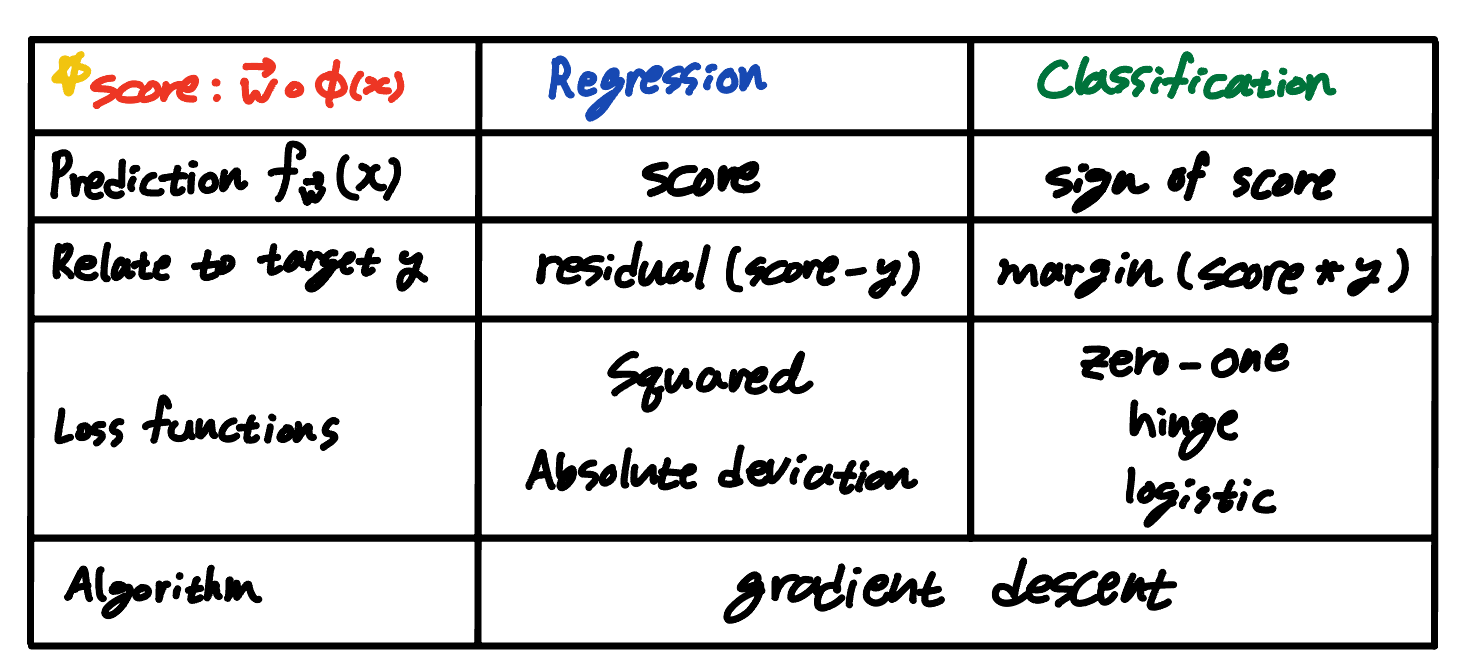 ☆ Score: w⃗ • φ(x) Regression Classification
Prediction f_w⃗(x) score sign of score
Relate to target y residual (score-y) margin (score * y)
Loss functions Squared zero-one
Absolute deviation hinge
logistic
Algorithm gradient descent